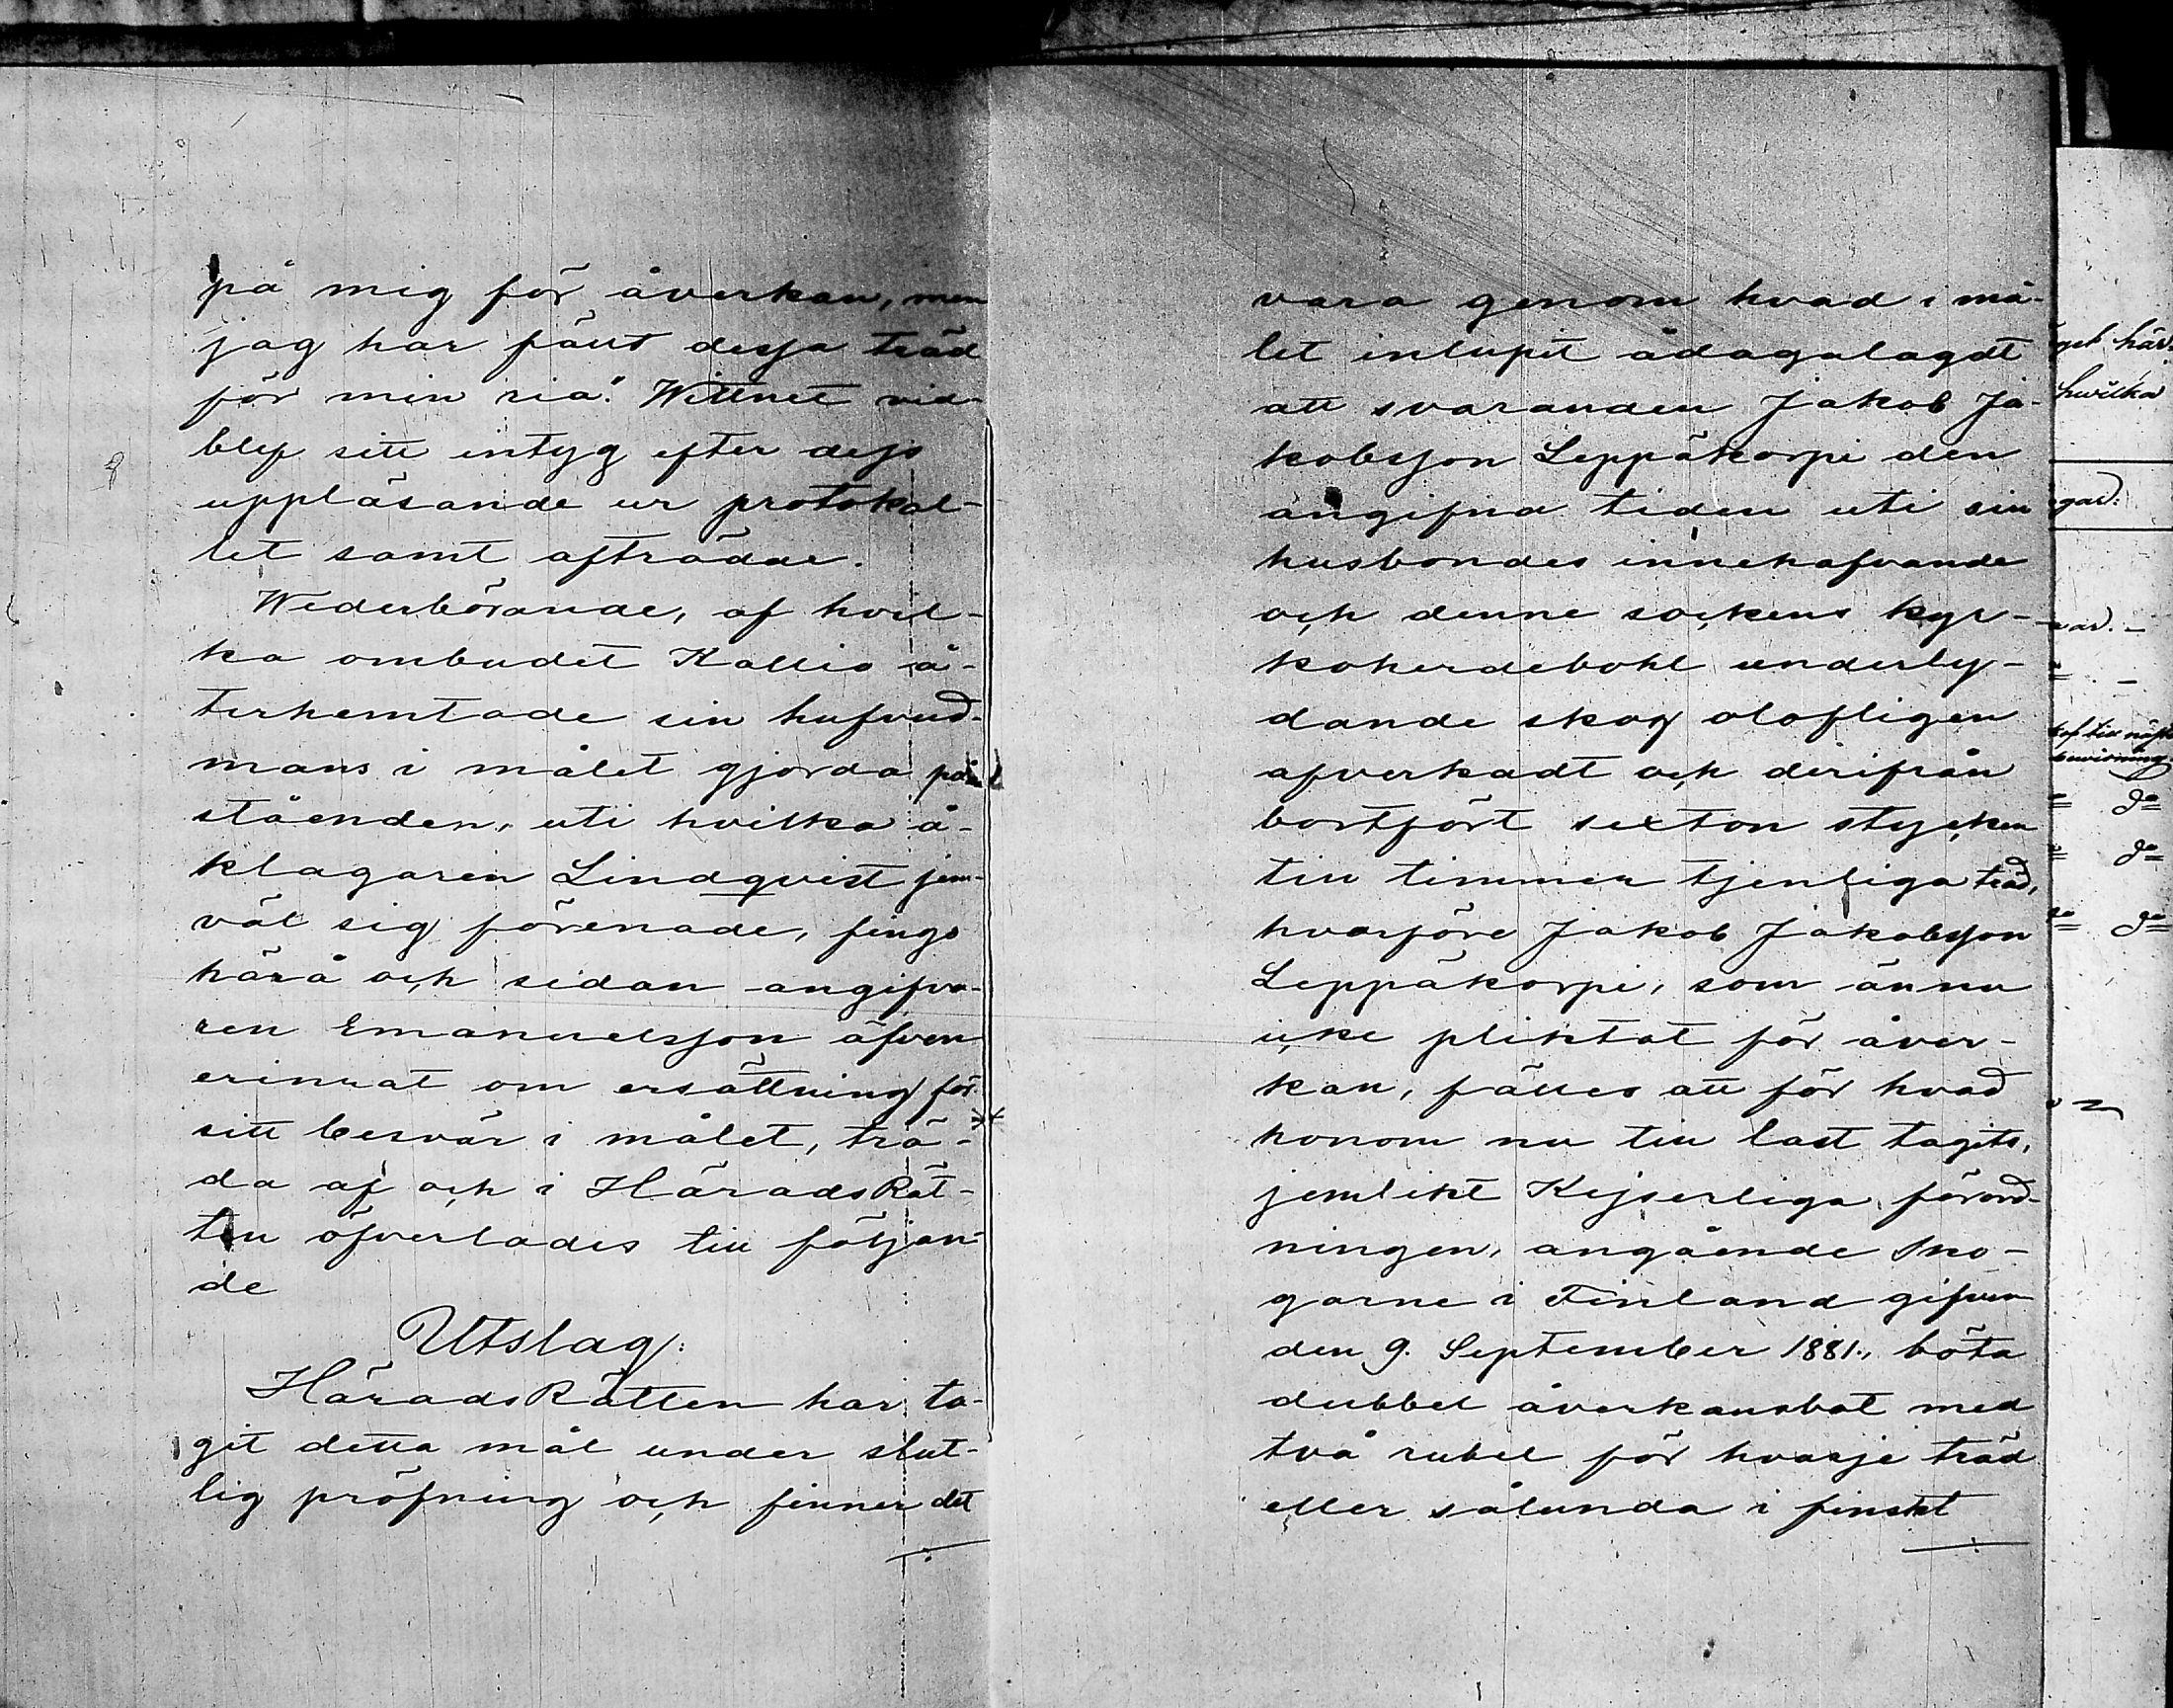 på mig för åverkan, men
jag har fällt dessa träd
för min ria." Wittnet vid-
blef sitt intyg efter dess
uppläsande ur protokol-
let samt afträdde.
Wederbörande, af hvil-
ka ombudet Kallio å-
terhemtade sin hufvud-
mans i målet gjorda på-
ståenden, uti hvilka å-
klagaren Lindqvist jem-
väl sig förenade, fingo
härå och sidan angifva-
ren Emanuelsson äfven
erinrat om ersättning för
sitt besvär i målet, trä-
da af och i HäradsRät-
ten öfverlades till följan-
de
Utslag:
HäradsRätten har ta-
git detta mål under slut-
lig pröfning och finner det
vara genom hvad i må-
let inlupit ådagalagdt
att svaranden Jakob Ja-
kobsson Leppäkorpi den
angifna tiden uti sin
husbondes innehafvande
och denne sockens kyr-
koherdebohl underly-
dande skog olofligen
afverkadt och derifrån
bortfört sexton stycken
till timmer tjenliga träd,
hvarföre Jakob Jakobsson
Leppäkorpi, som ännu
icke pliktat för åver-
kan, fälles att för hvad
honom nu till last tagits,
jemlikt Kejserliga förord-
ningen, angående sko-
garne i Finland gifven
den 9. September 1881., böta
dubbel åverkansbot med
två rubel för hvarje träd
eller sålunda i finskt
get här-
hwilka
gar: